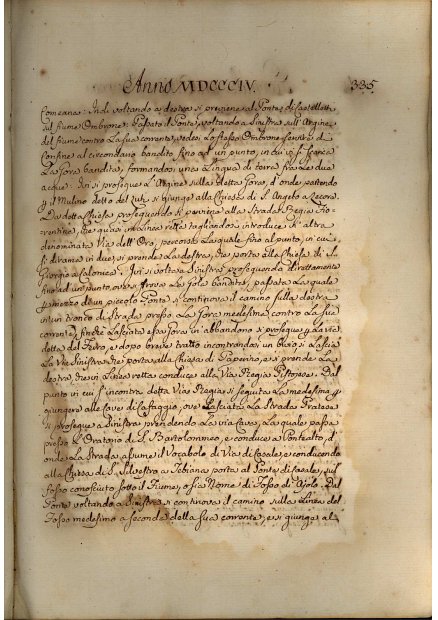 Anno MDCCCIV. 335.
Comeana: Indi voltando a destra si perviene al Ponte di Castelletti
sul fiume Ombrone: Passato il Ponte, voltando a Sinistra sull'Argine
del fiume contro La sua corrente, vedesi Lo stesso Ombrone servire di
Confine al circondario bandito fino ad un punto, in cui si
La Gora bandita, formandosi una Lingua di terra fra Le due
acque. Ivi si prosegue L'Argine sulla detta Gora, d'onde partendo
p il Mulino detto del si giunge alla Chiesa di S. Angelo a Lecore.
Da detta Chiesa proseguendo si perviene alla Strada Regia Fio-
rentina, che quasi in Linea retta tagliandosi introduce in altra
denominata Via dell'Oro, percorsa La quale fino al punto, in cui
si dirama in due, si prende La destra, che porta alla Chiesa di S.
Giorgio a Colonica. Ivi si volta a Sinistra proseguendo direttamente
fino ad un punto, ove si trova La Gora bandita, passata La quale
p mezzo d'un piccolo Ponte si continova il camino sulla destra
in un tronco di Strada presso La Gora medesima contro La sua
corrente, finche Lasciata essa Gora in abbandono si prosegue p La via
detta del Ferro, e dopo breve tratto incontrandosi un Bivio, si Lascia
La via Sinistra che porta alla Chiesa di Paperino, e si prende La
destra, che in Linea retta conduce alla Via Regia Pistojese. Dal
punto in cui s'incontra detta Via Regia si seguita La medesima p
giungere alle Cave di Cafaggio, ove Lasciata La Strada Pratese
si prosegue a Sinistra prendendo La via Cava, La quale passa
presso L'Oratorio di S. Bartolommeo, e conduce a Pontealto, d'
onde La Strada assume il Vocabolo di Via di Casale, e conducendo
alla Chiesa di S. Silvestro a Tobiana porta al Ponte di Casale, sul
fosso conosciuto sotto il Fiume, o sia Nome di Fosso di Ajolo. Dal
Ponte voltando a Sinistra si continova il camino sulla Linea del
Fosso medesimo a seconda della sua corrente, e si giunge al